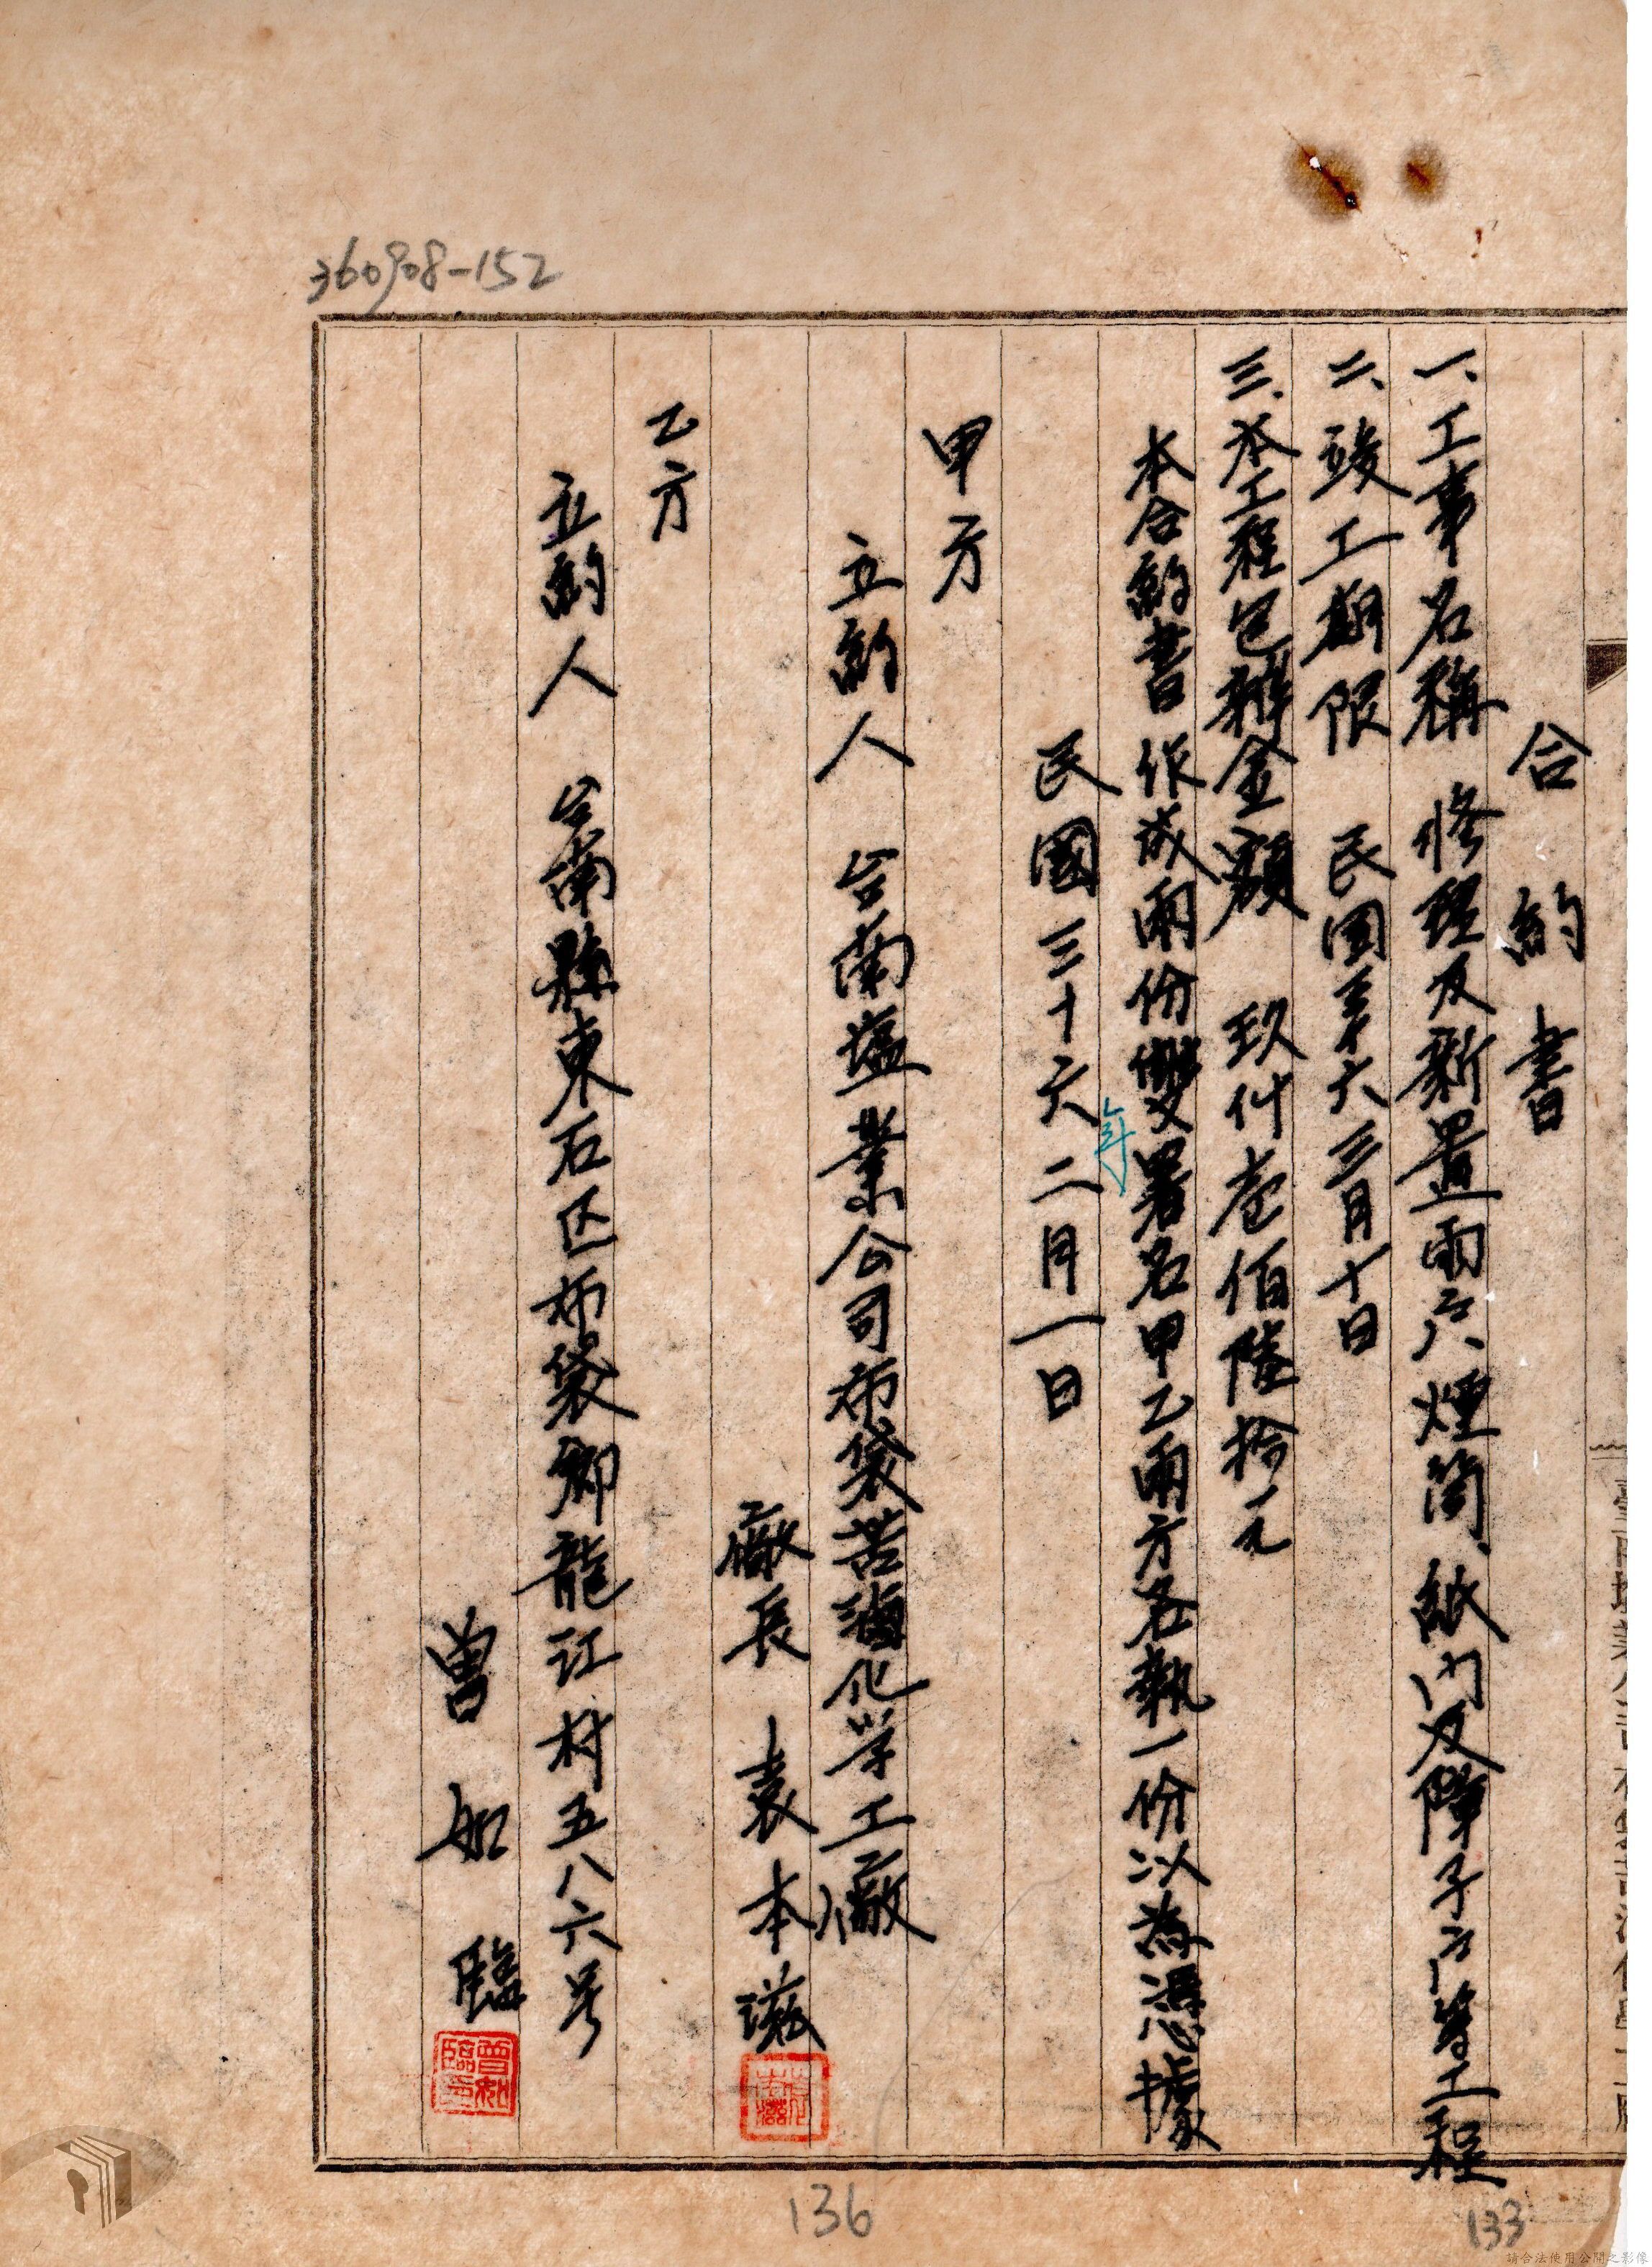 合約書
一、工事名稱 修理及新置雨戶、煙筒、紙門及障子戶等工程
二、竣工期限 民國三十六三月十日
三、本工程包辦金額 玖仟壹佰陸拾元
本合約書作成兩份雙署名甲乙兩方各執一份以為憑據
民國三十六年二月一日
甲方
立約人 台南塩業公司布袋苦滷化学工廠
廠長 袁本滋
乙方
立約人 台南縣東石区布袋鄉龍江村五八六号
曾如臨
曾如臨印
360908-152
136
133
請合法使用公開之影像